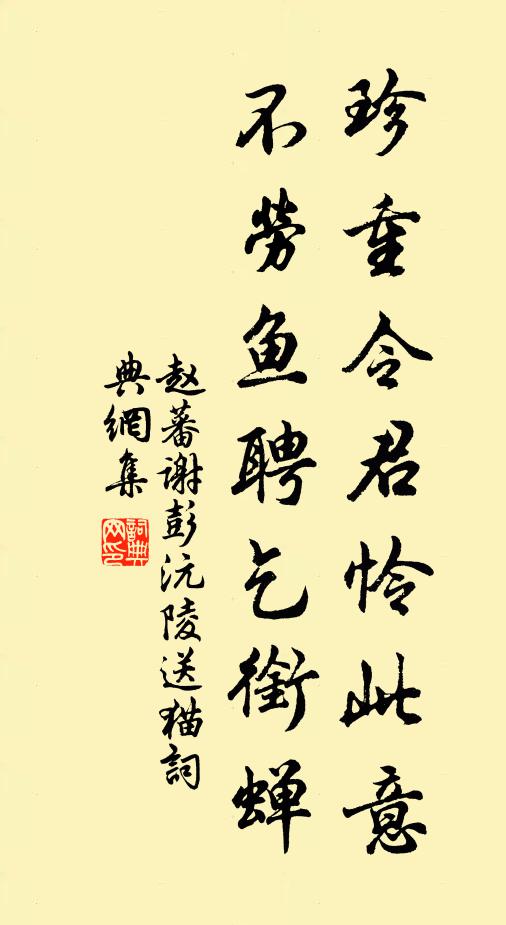 珍重令君怜此意
不劳鱼聘乞衔蝉
赵蕃谢彭沅陵送猫詞
典網集
詞典网印